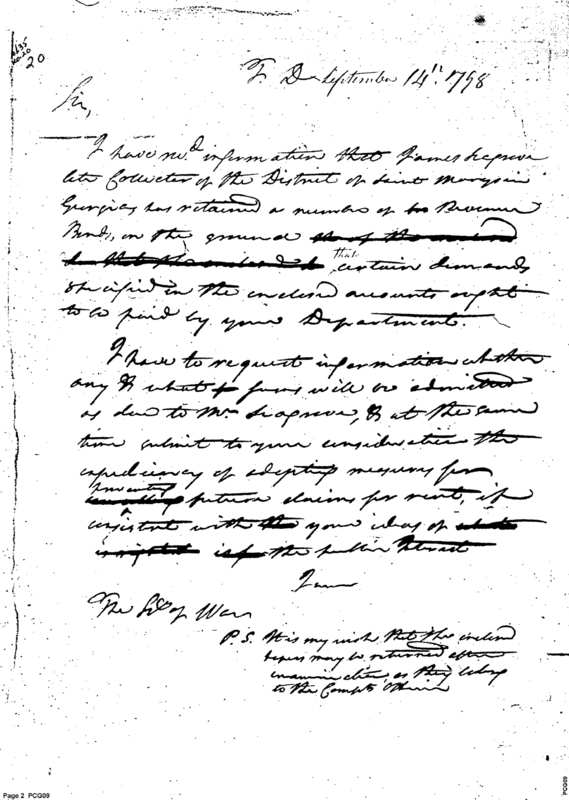 20
T. D. September 14th. 1798
Sir,
I have recd information that James Seagrove
late Collector of the District of Saint Marys in
Georgia, has retained a number of Revenue
Bonds, on the ground
that certain demands
specified in the inclosed accounts ought
to be paid by your Department.
I have to request information whether
any & what sums will be admitted
as due to Mr Seagrove, & at the same
time submit to your consideration the
expediency of adopting measures for
preventing future claims for rent, if
consistent with your ideas of
the public Interest
I am
The Secy of War
P. S. It is my wish that the inclosed
papers may be returned after
examination, as they belong
to the Compts Office
Page 2 PCG09
PCG09